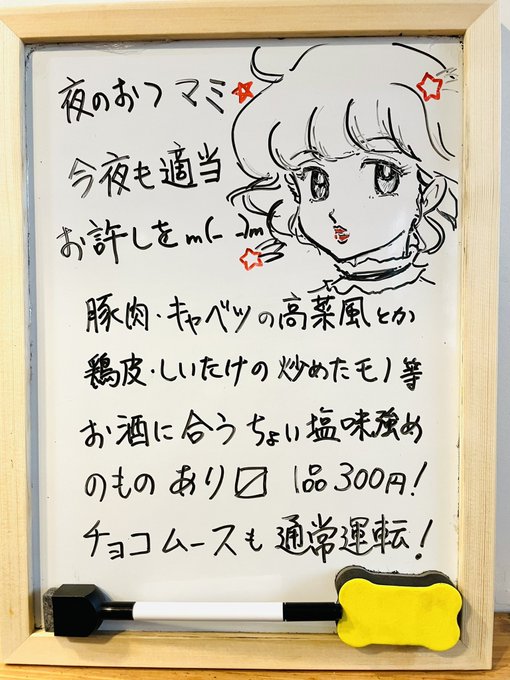 夜のおつマミ
今夜も適当
お許しをm(_ _)m
豚肉・キャベツの高菜風とか
鶏皮・しいたけの炒めたモノ等
お酒に合うちょい塩味強め
のものあり〼 1品300円!
チョコムースも通常運転!